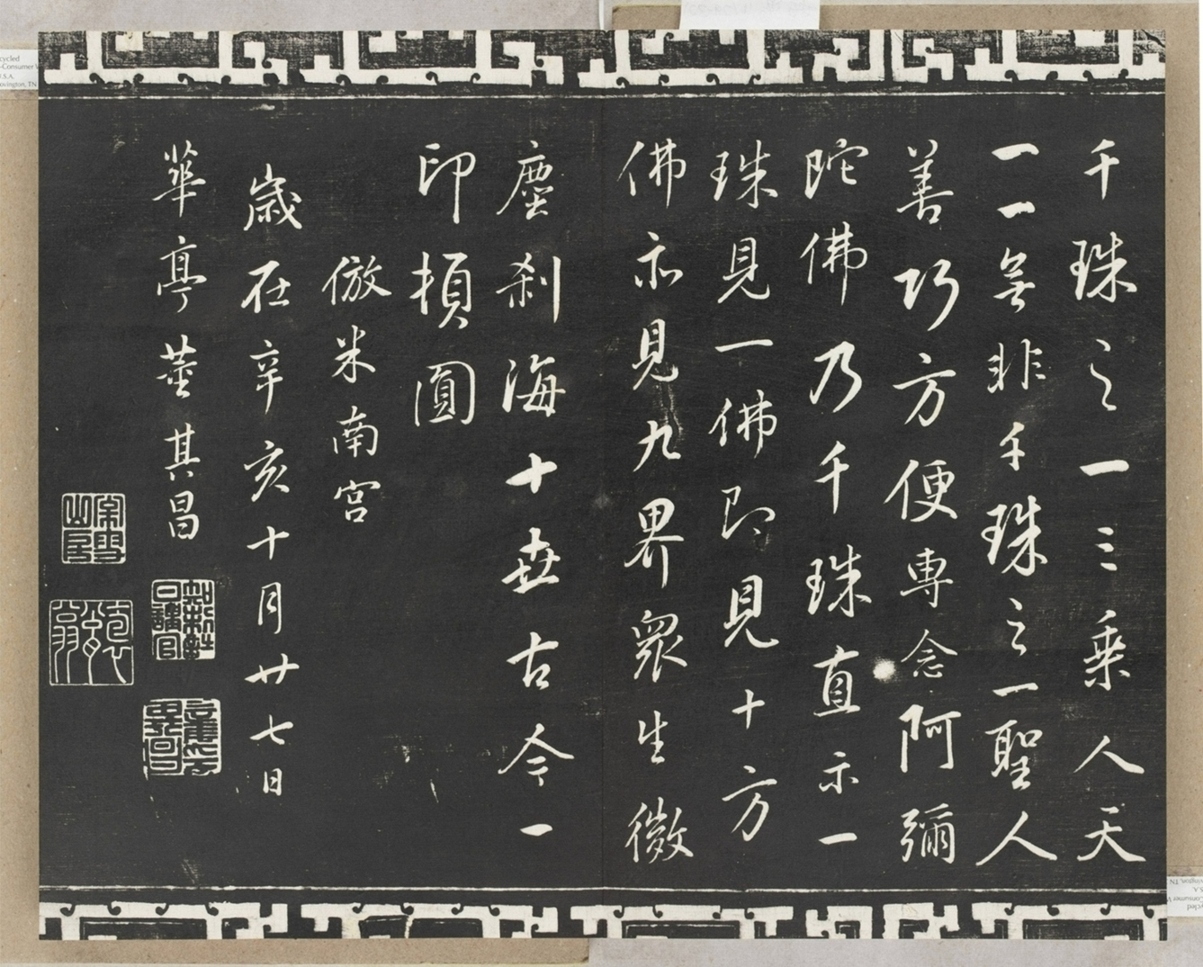 千珠之一三乗人天
一一無非千珠之一聖人
善巧方便專念阿彌
陀佛乃千珠直示一
珠見一佛即見十方
佛亦見九界衆生微
塵刹海十世古今一
印頓圓
倣米南宮
歲在辛亥十月廿七日
華亭董其昌
知制誥日講官
董其昌印